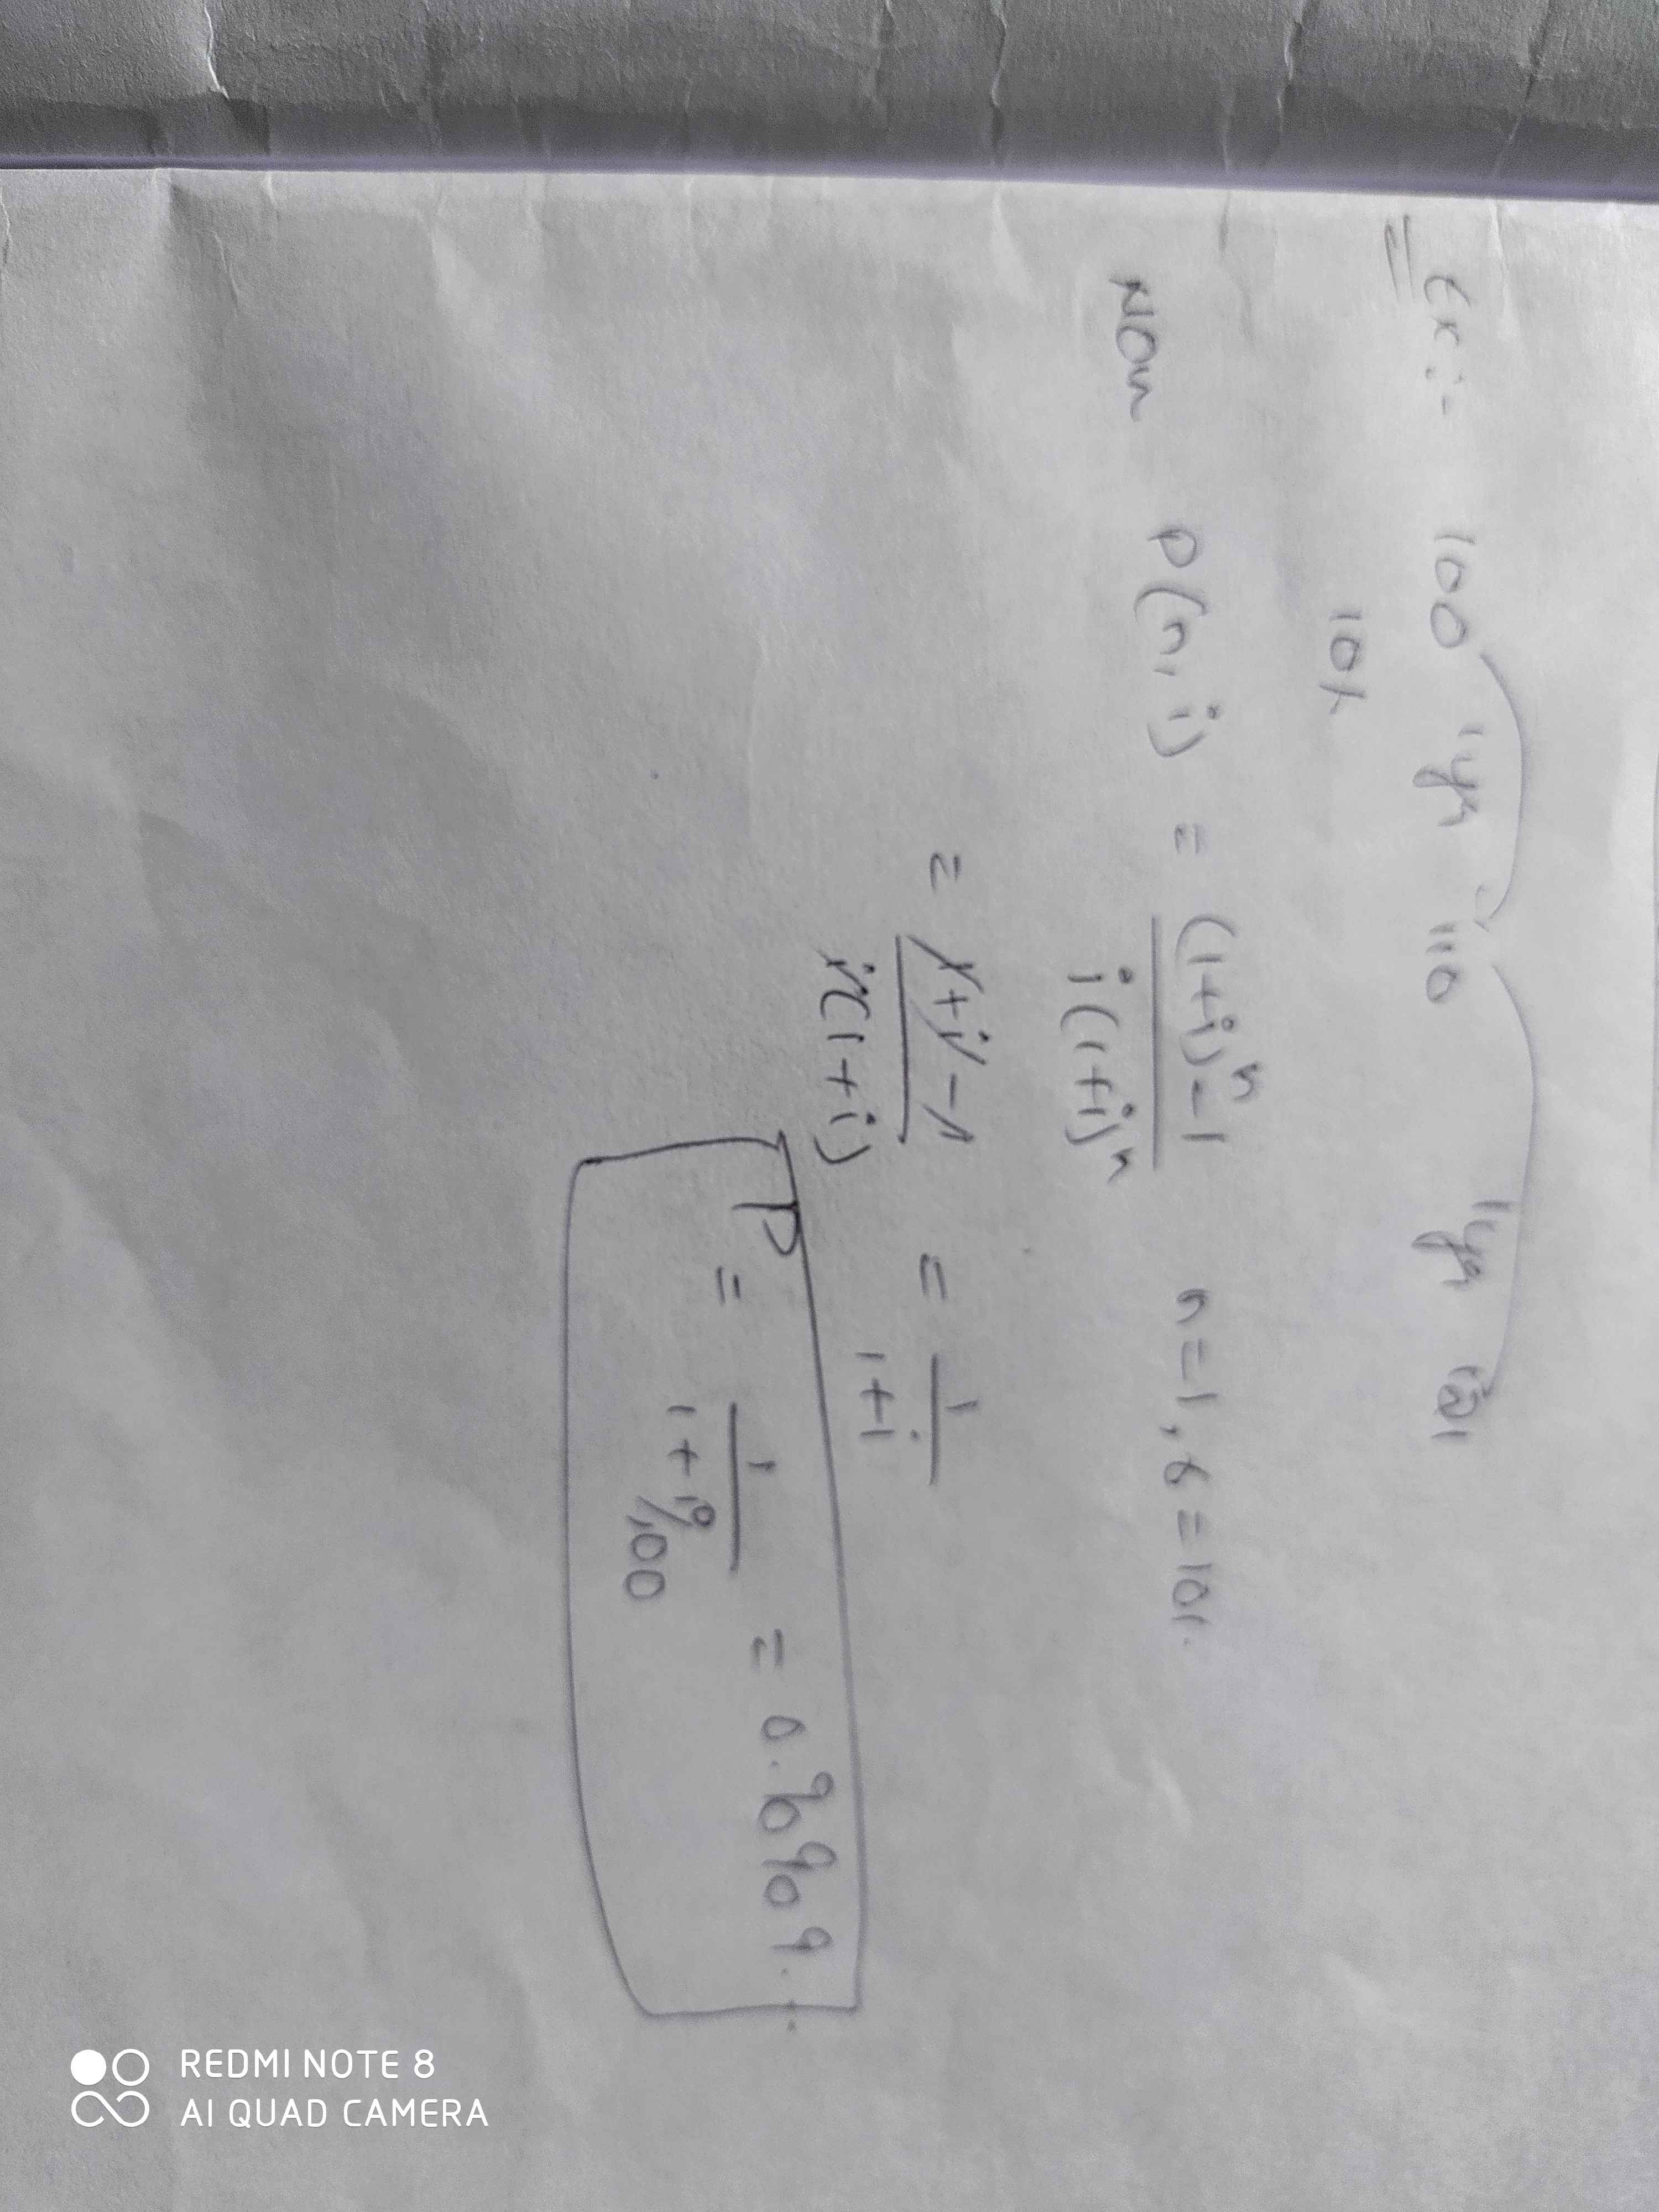 Ex:- 100 1yr 110 1yr 121
10%
Now P(n, i) = (1+i)^n - 1 / i(1+i)^n n=1, 6=10%.
= 1+i-1 / i(1+i) = 1 / 1+i
P = 1 / 1+10/100 = 0.90909.
REDMI NOTE 8
AI QUAD CAMERA